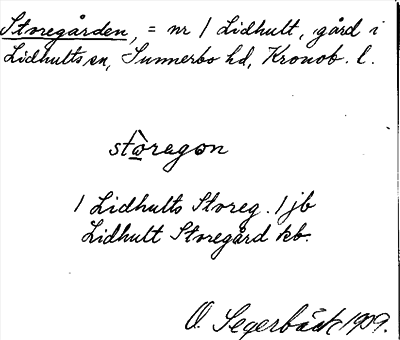 Storegården, = nr 1 Lidhult, gård i
Lidhults sn, Sunnerbo hd, Kronob. l.
storegon
1 Lidhults Storeg. 1 jb
Lidhult Storegård kb.
O. Segerbäck 1909.